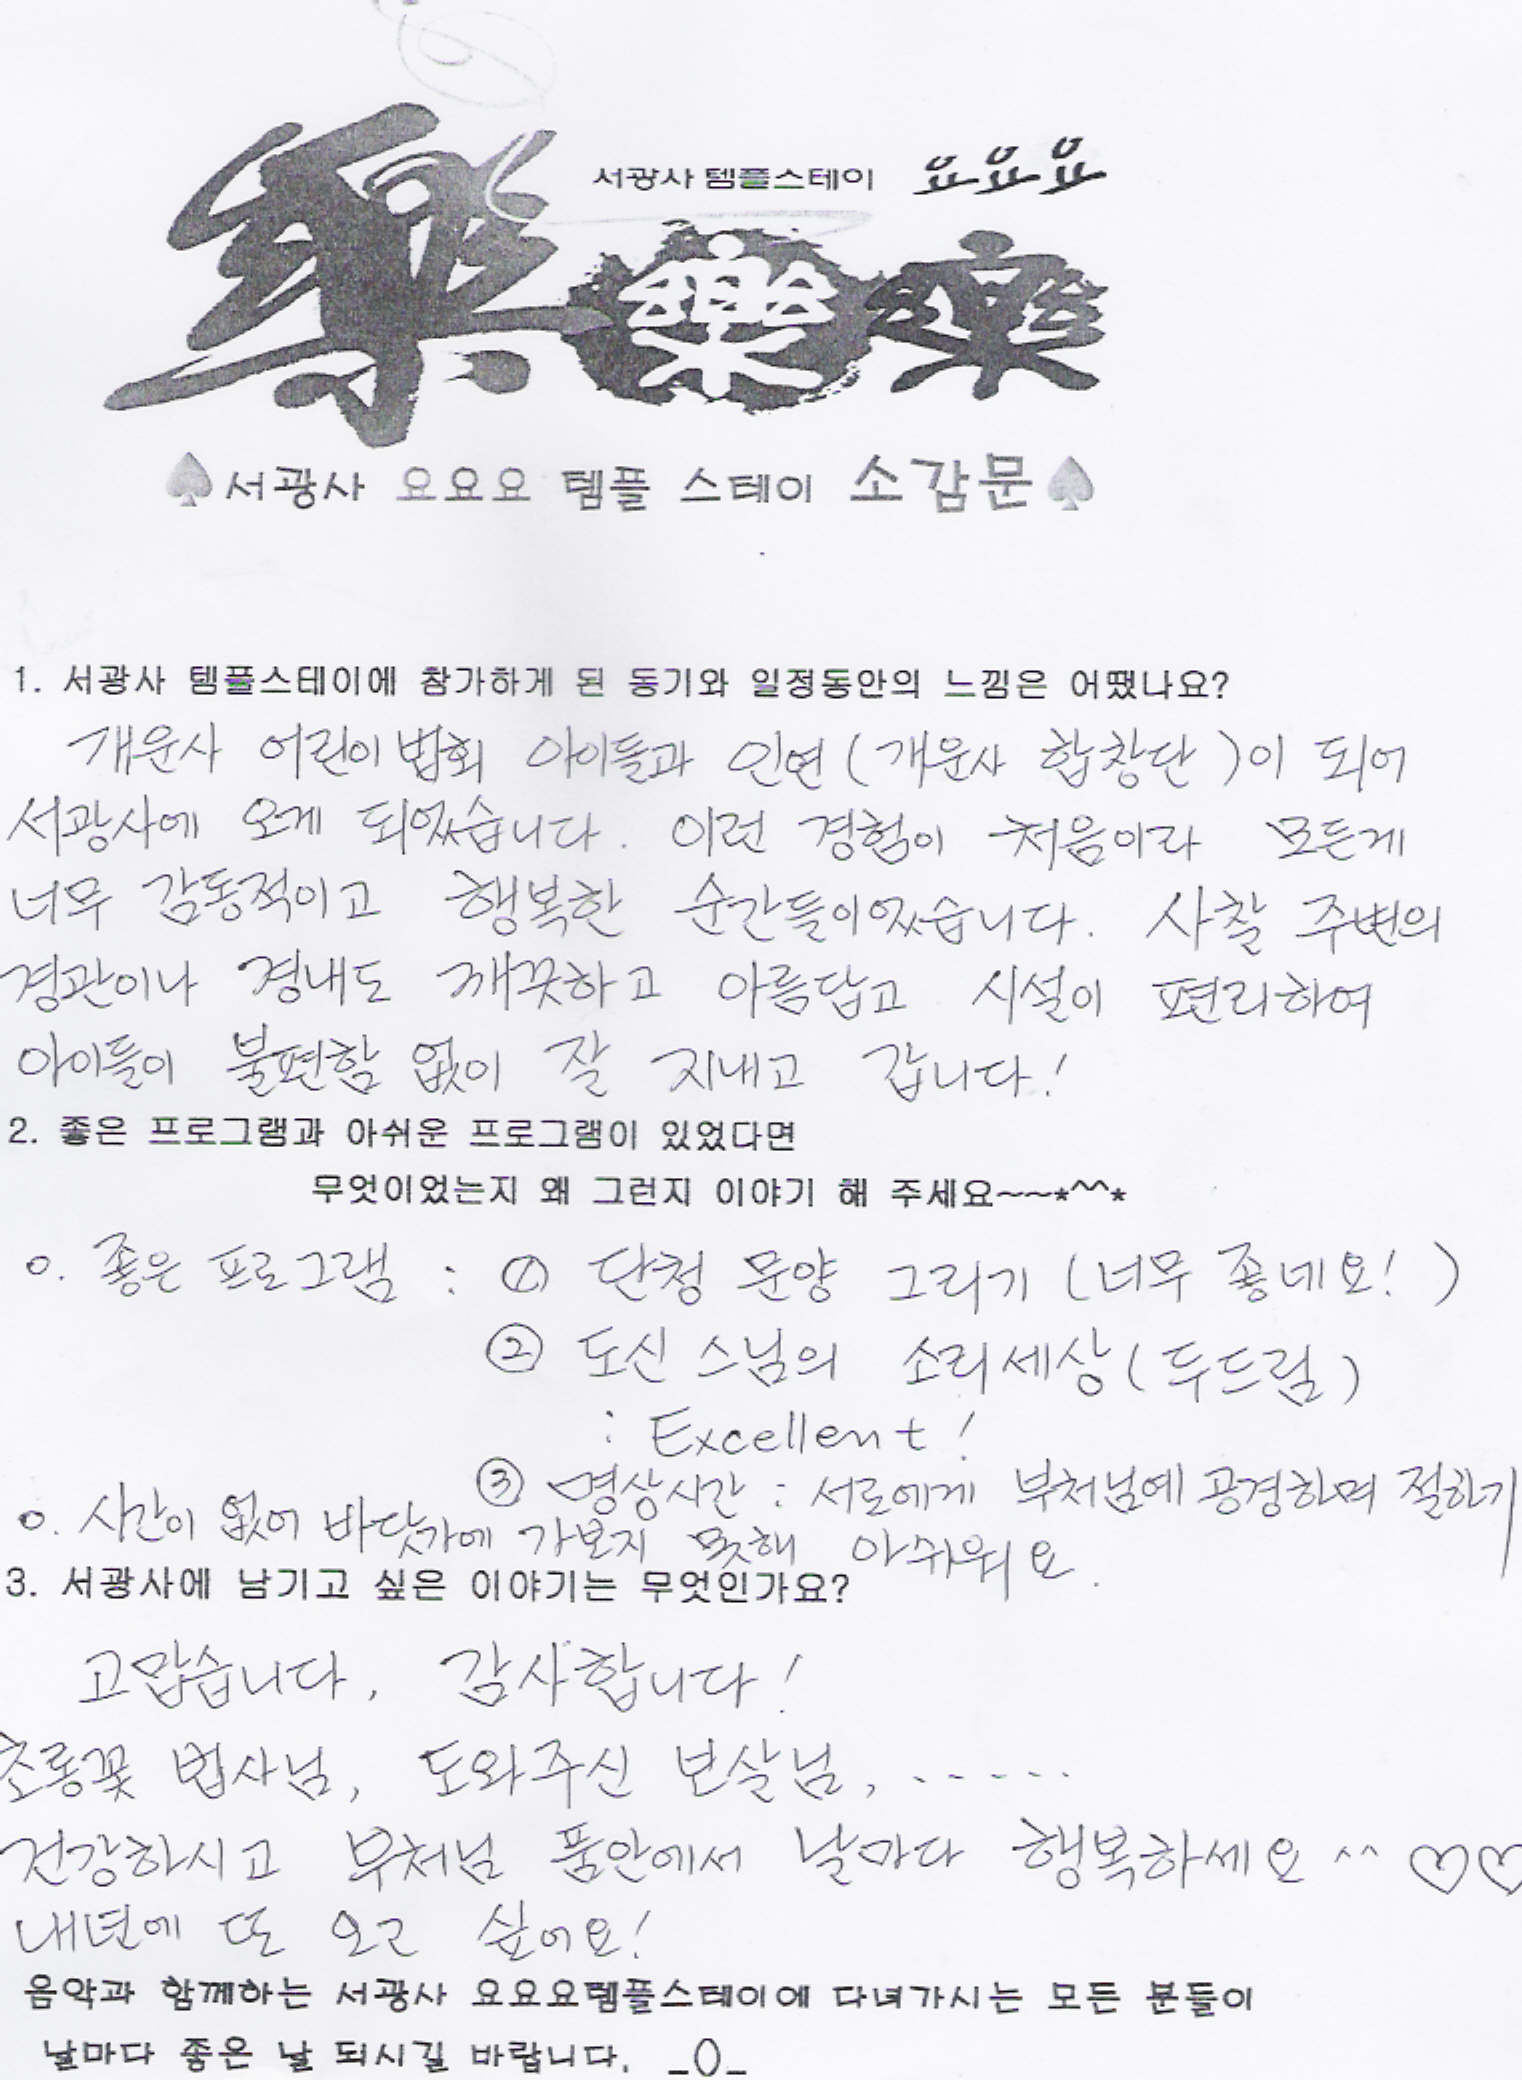 서광사 템플스테이 요요요
樂樂樂
♠서광사 요요요 템플 스테이 소감문♠
1. 서광사 템플스테이에 참가하게 된 동기와 일정동안의 느낌은 어땠나요?
개운사 어린이법회 아이들과 인연(개운사 합창단)이 되어
서광사에 오게 되었습니다. 이런 경험이 처음이라 모든게
너무 감동적이고 행복한 순간들이었습니다. 사찰 주변의
경관이나 경내도 깨끗하고 아름답고 시설이 편리하여
아이들이 불편함 없이 잘 지내고 갑니다!
2. 좋은 프로그램과 아쉬운 프로그램이 있었다면
무엇이었는지 왜 그런지 이야기 해 주세요~~*^^*
o. 좋은 프로그램 : ① 단청 문양 그리기 (너무 좋네요!)
② 도신 스님의 소리세상(두드림)
: Excellent!
③ 명상시간 : 서로에게 부처님에 공경하며 절하기
o. 시간이 없어 바닷가에 가보지 못해 아쉬워요.
3. 서광사에 남기고 싶은 이야기는 무엇인가요?
고맙습니다, 감사합니다!
초롱꽃 법사님, 도와주신 보살님, -----
건강하시고 부처님 품안에서 날마다 행복하세요^^ ♡♡
내년에 또 오고 싶어요!
음악과 함께하는 서광사 요요요템플스테이에 다녀가시는 모든 분들이
날마다 좋은 날 되시길 바랍니다. _()_